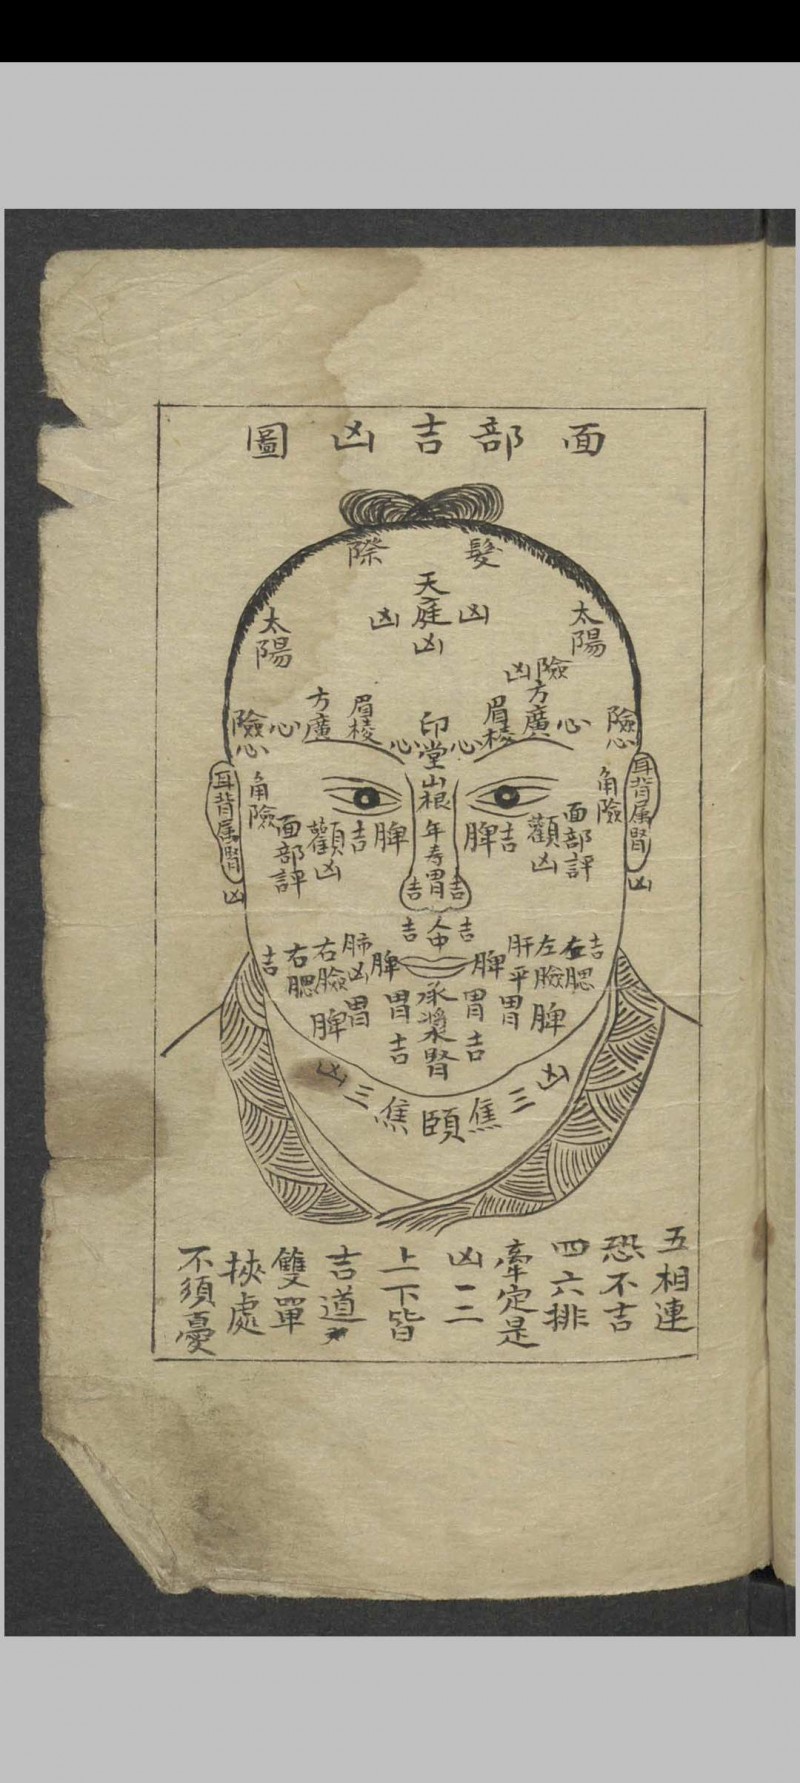 面部吉凶圖
髮際
天庭
凶
凶
凶
太陽
太陽
險
凶
方廣
眉棱
心
險
心
印堂
心
心
眉棱
方廣
心
險
心
山根
年壽
胃
吉
吉
耳背属腎
凶
角險
面部評
顴
凶
吉
脾
脾
吉
顴
凶
面部評
角險
耳背属腎
凶
人中
吉
吉
吉
左腮
左臉
肝
平
胃
脾
脾
胃
吉
承漿
腎
脾
胃
吉
肺
凶
胃
脾
右臉
右腮
吉
凶
三
焦
頤
焦
三
凶
五相連
恐不吉
四六排
牽定是
凶一二
上下皆
吉道
雙單
挾處
不須憂